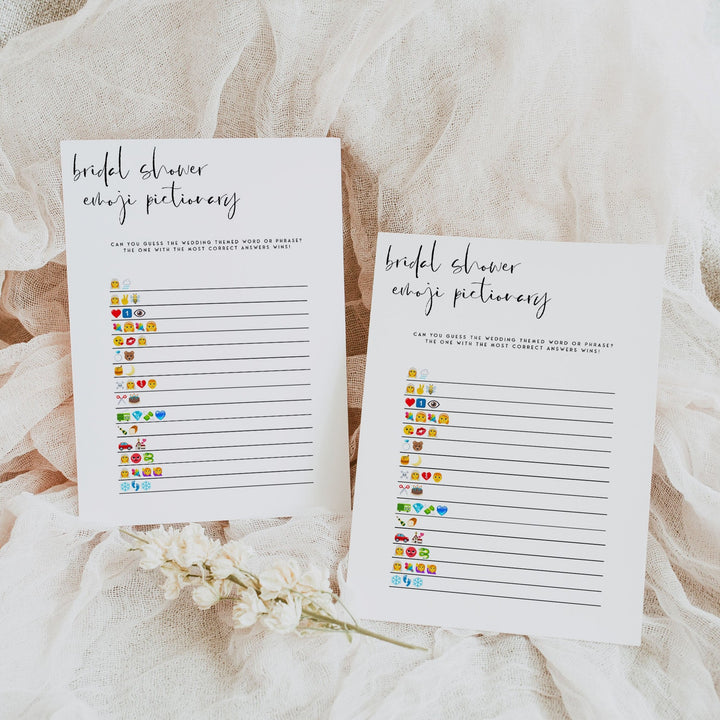 bridal shower
emoji pictionary
CAN YOU GUESS THE WEDDING THEMED WORD OR PHRASE?
THE ONE WITH THE MOST CORRECT ANSWERS WINS!
bridal shower
emoji pictionary
CAN YOU GUESS THE WEDDING THEMED WORD OR PHRASE?
THE ONE WITH THE MOST CORRECT ANSWERS WINS!